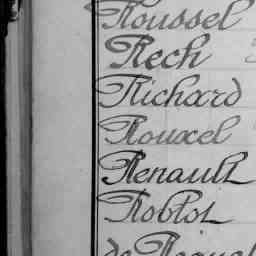 Roussel
Rech
Richard
Rouxel
Renault
Roblot
de